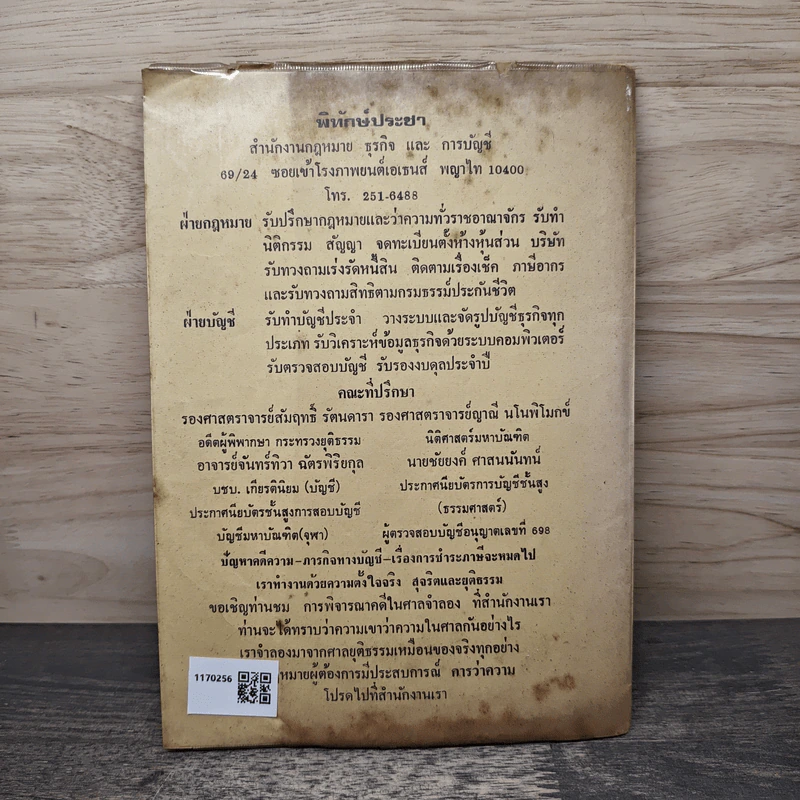 พิทักษ์ประชา
สำนักงานกฎหมาย ธุรกิจ และ การบัญชี
69/24 ซอยเข้าโรงภาพยนต์เอเธนส์ พญาไท 10400
โทร. 251-6488
ฝ่ายกฎหมาย รับปรึกษากฎหมายและว่าความทั่วราชอาณาจักร รับทำ
นิติกรรม สัญญา จดทะเบียนตั้งห้างหุ้นส่วน บริษัท
รับทวงถามเร่งรัดหนี้สิน ติดตามเรื่องเช็ค ภาษีอากร
และรับทวงถามสิทธิตามกรมธรรม์ประกันชีวิต
ฝ่ายบัญชี รับทำบัญชีประจำ วางระบบและจัดรูปบัญชีธุรกิจทุก
ประเภท รับวิเคราะห์ข้อมูลธุรกิจด้วยระบบคอมพิวเตอร์
รับตรวจสอบบัญชี รับรองงบดุลประจำปี
คณะที่ปรึกษา
รองศาสตราจารย์สัมฤทธิ์ รัตนดารา รองศาสตราจารย์ญาณี นโนพิโมกข์
อดีตผู้พิพากษา กระทรวงยุติธรรม นิติศาสตร์มหาบัณฑิต
อาจารย์จันทร์ทิวา ฉัตรพิริยกุล นายชัยยงค์ ศาสนนันทน์
บชบ. เกียรตินิยม (บัญชี) ประกาศนียบัตรการบัญชีชั้นสูง
ประกาศนียบัตรชั้นสูงการสอบบัญชี (ธรรมศาสตร์)
บัญชีมหาบัณฑิต(จุฬา) ผู้ตรวจสอบบัญชีอนุญาตเลขที่ 698
ปัญหาคดีความ-ภารกิจทางบัญชี-เรื่องการชำระภาษีจะหมดไป
เราทำงานด้วยความตั้งใจจริง สุจริตและยุติธรรม
ขอเชิญท่านชม การพิจารณาคดีในศาลจำลอง ที่สำนักงานเรา
ท่านจะได้ทราบว่าความเขาว่าความในศาลกันอย่างไร
เราจำลองมาจากศาลยุติธรรมเหมือนของจริงทุกอย่าง
หมายผู้ต้องการมีประสบการณ์ การว่าความ
โปรดไปที่สำนักงานเรา
1170256